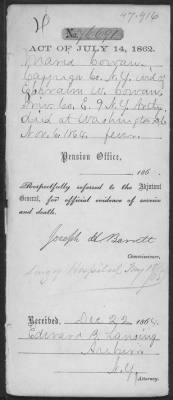 47.916
No. 76091
ACT OF JULY 14, 1862.
Maria Cowan,
Cayuga Co. N.Y. wid. of
Ephraim W. Cowan,
Priv. Co. E. 9 N.Y. Arty.
died at Washington D.C.
Nov. 6. 1864. fever.
Pension Office,
186 .
Respectfully referred to the Adjutant
General, for official evidence of service
and death.
Joseph H Barrett
Commissioner,
Surg. Hospital
Received, Dec 22 1864
Edward B. Lansing
Auburn
N.Y.
Attorney.